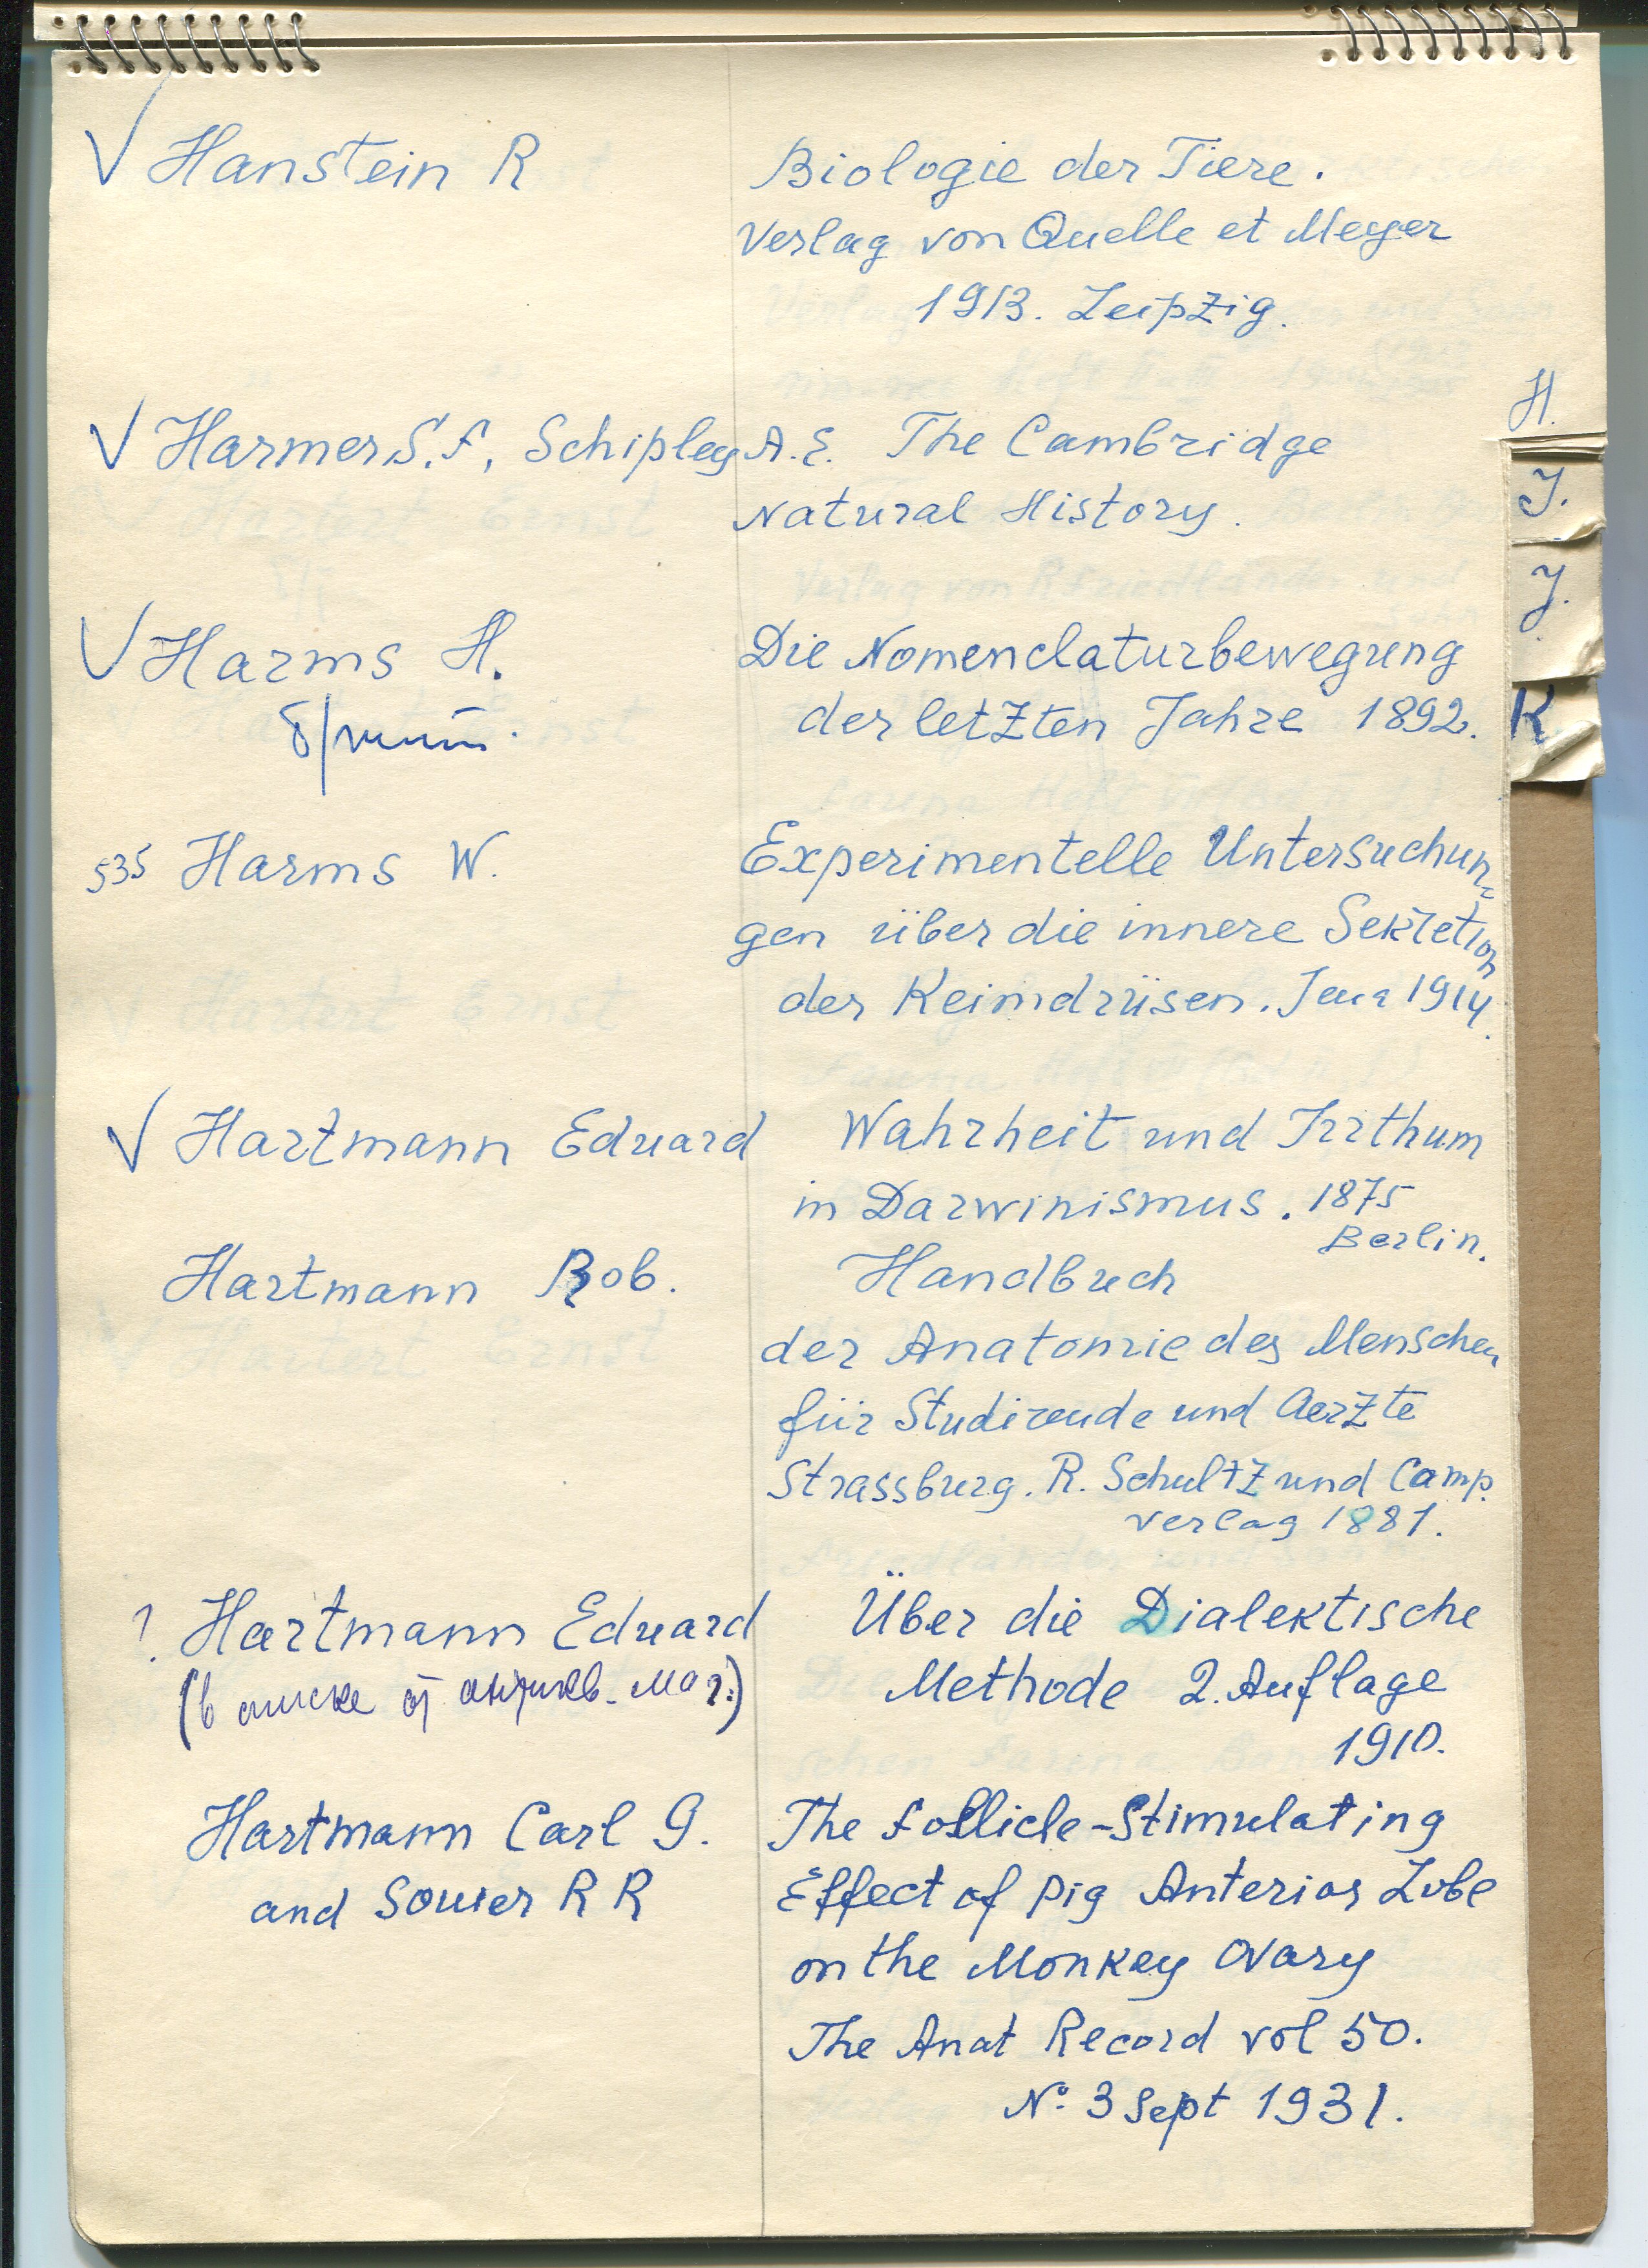 √ Hanstein R
Biologie der Tiere.
Verlag von Quelle et Meyer
1913. Leipzig.
√ Harmer S. F, Schipley A. E. The Cambridge
Natural History.
√ Harms H.
Die Nomenclaturbewegung
б/
der letzten Jahre 1892.
535 Harms W.
Experimentelle Untersuchun-
gen über die innere Sekretion
der Keimdrüsen. Jena 1914.
√ Hartmann Eduard
Wahrheit und Irrthum
in Darwinismus. 1875
Berlin.
Hartmann Rob.
Handbuch
der Anatomie des Menschen
für Studirende und Aerzte
Strassburg. R. Schultz und Camp.
Verlag 1881.
? Hartmann Eduard
Über die Dialektische
(в списке от антикв. маг.)
Methode 2. Auflage
1910.
Hartmann Carl G.
and Souier R R
The Follicle-Stimulating
Effect of pig Anterior Lobe
on the Monkey Ovary
The Anat Record vol 50.
№ 3 Sept 1931.
H.
J.
J.
K